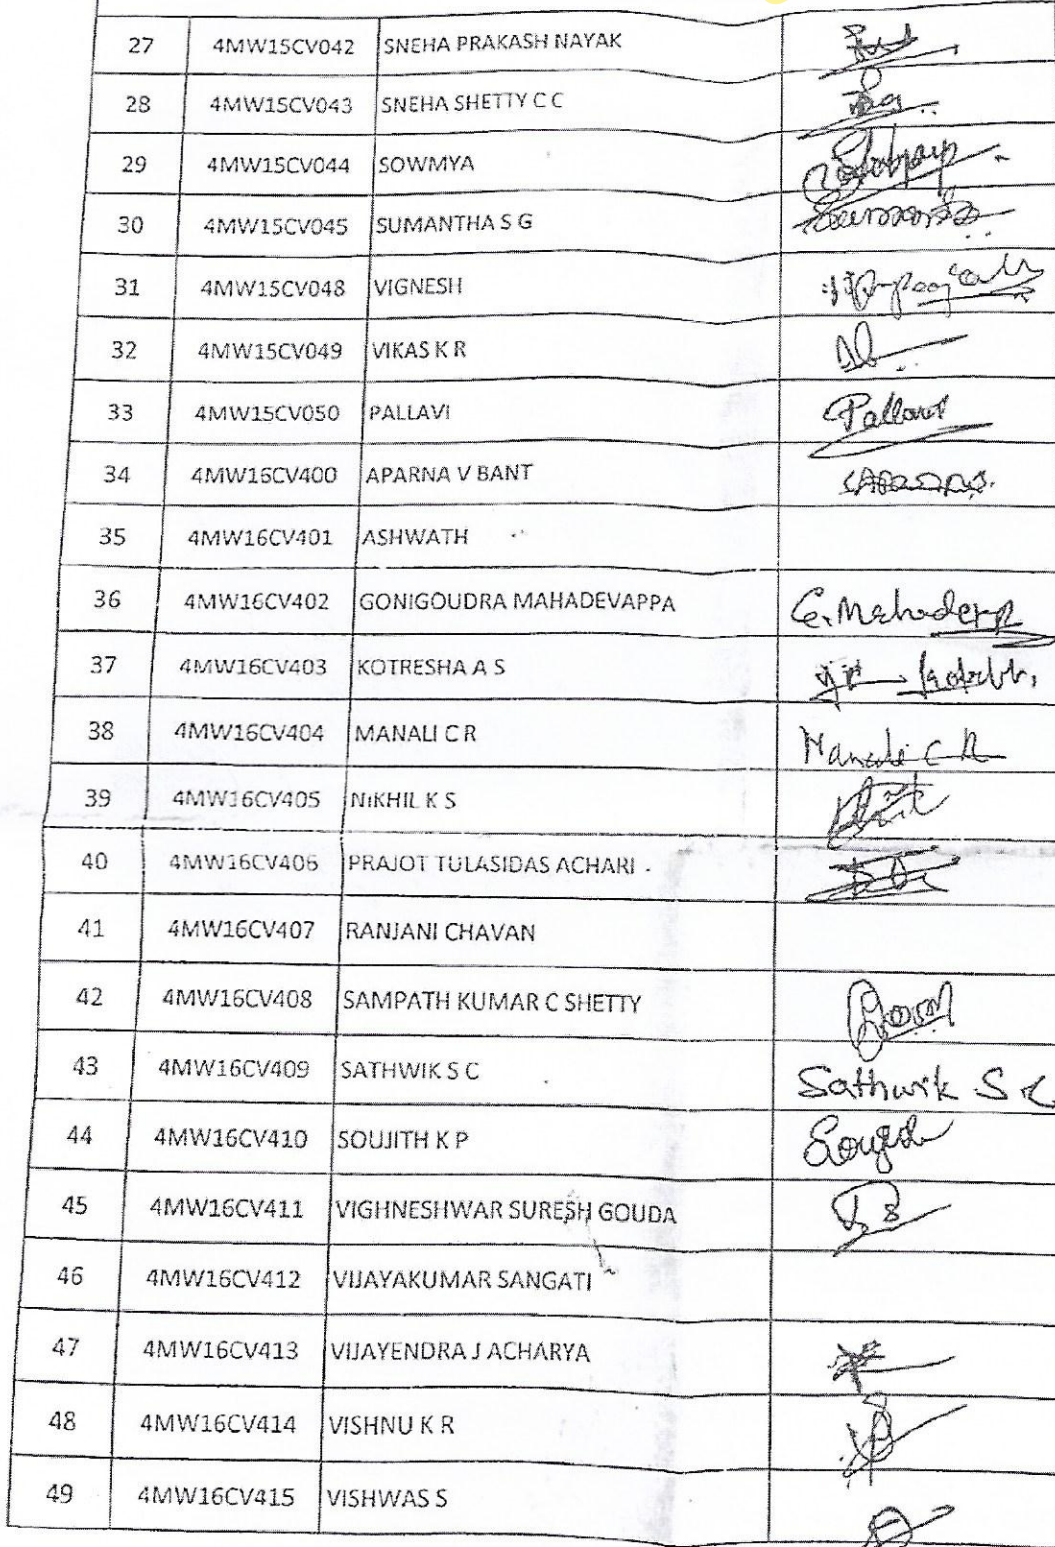 27 4MW15CV042 SNEHA PRAKASH NAYAK
28 4MW15CV043 SNEHA SHETTY C C
29 4MW15CV044 SOWMYA
30 4MW15CV045 SUMANTHA S G
31 4MW15CV048 VIGNESH
32 4MW15CV049 VIKAS K R
33 4MW15CV050 PALLAVI Pallavi
34 4MW16CV400 APARNA V BANT
35 4MW16CV401 ASHWATH
36 4MW16CV402 GONIGOUDRA MAHADEVAPPA
37 4MW16CV403 KOTRESHA A S
38 4MW16CV404 MANALI C R Manali C R
39 4MW16CV405 NIKHIL K S
40 4MW16CV406 PRAJOT TULASIDAS ACHARI
41 4MW16CV407 RANJANI CHAVAN
42 4MW16CV408 SAMPATH KUMAR C SHETTY
43 4MW16CV409 SATHWIK S C Sathwik S C
44 4MW16CV410 SOUJITH K P
45 4MW16CV411 VIGHNESHWAR SURESH GOUDA
46 4MW16CV412 VIJAYAKUMAR SANGATI
47 4MW16CV413 VIJAYENDRA J ACHARYA
48 4MW16CV414 VISHNU K R
49 4MW16CV415 VISHWAS S